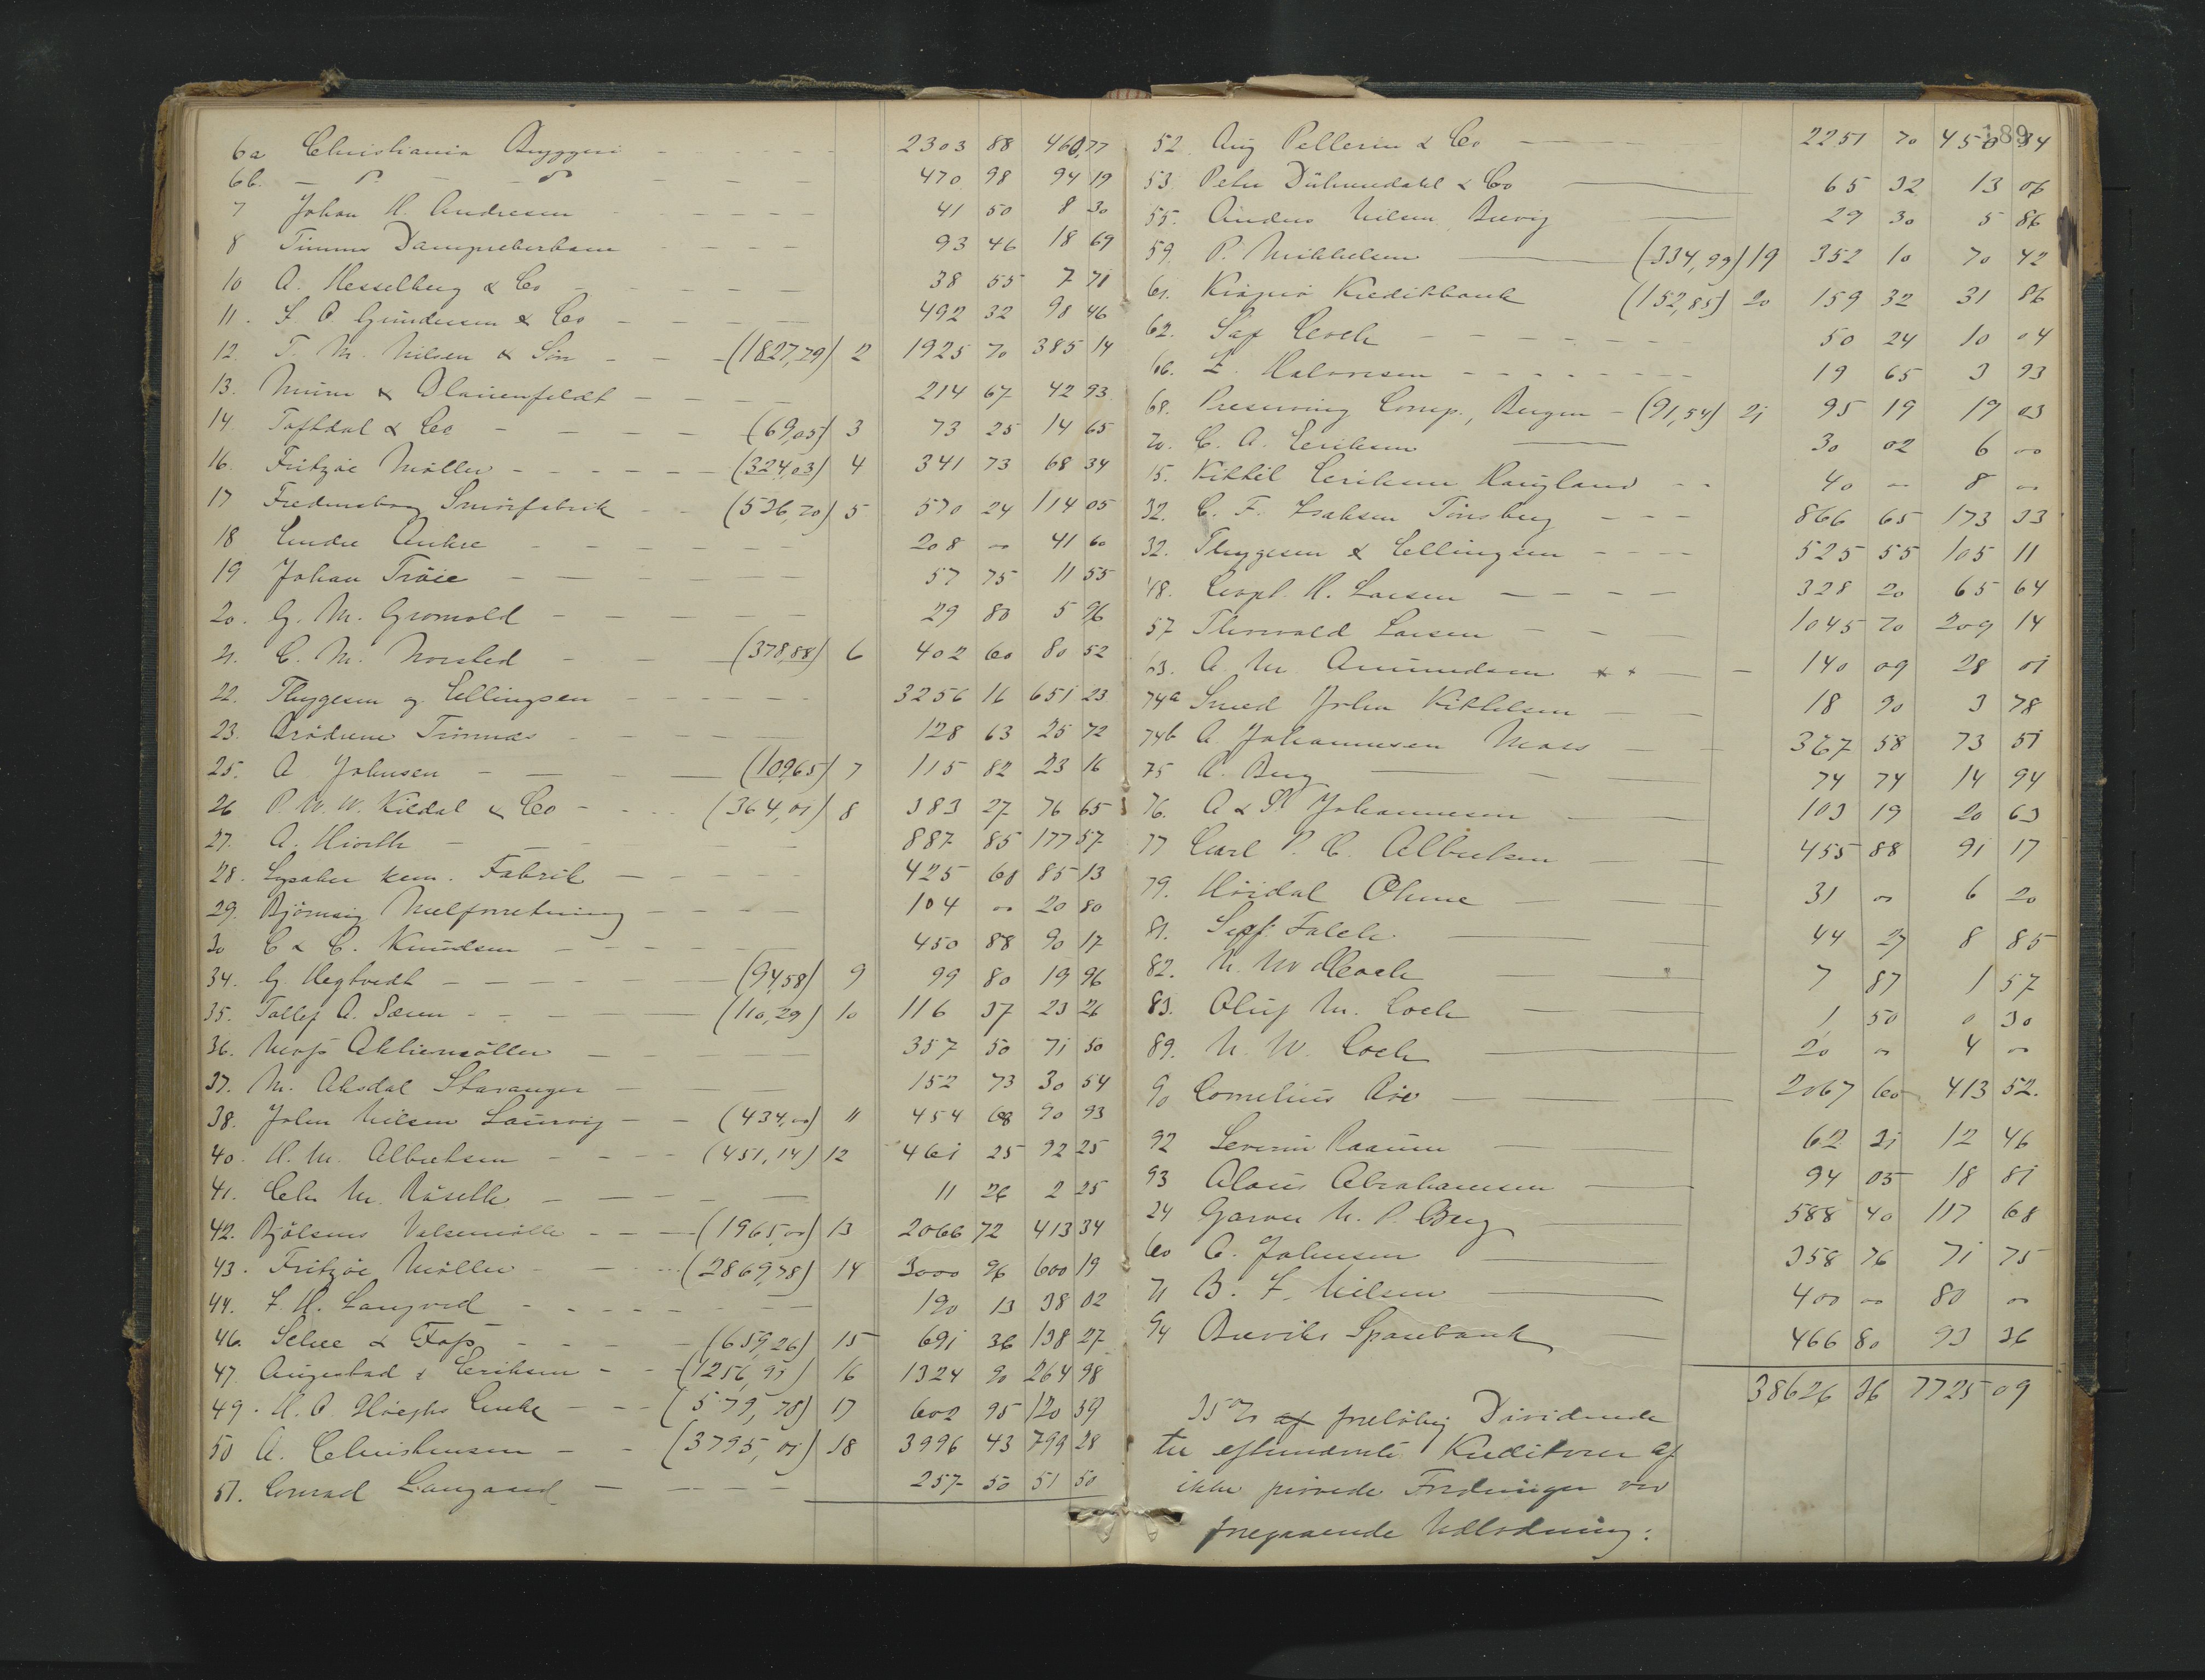 6a Christiania Bryggeri - - - - - 2303 88 460,77
6b. - do - - do - - - 470 98 94 19
7 Johan H. Andresen - - - - - 41 50 8 30
8 Timms - - - - 93 46 18 69
10 A. Hesselberg & Co - - - - - 38 55 7 71
11. S. O Gundersen & Co - - - - 492 32 98 46
12. T. M. Nilsen & Søn - - - (1827,79) 2 1925 70 385 14
13. Münn & Blauenfeldt - - - - 214 67 42 93
14. Toftdal & Co - - - - (69,05) 3 73 25 14 65
16. Fritzöe Möller - - - - - - (324,03) 4 341 73 68 34
17 Fredensborg Smörfabrik - - (536,70) 5 570 24 114 05
18 Endre Ankre - - - - - - 208 00 41 60
19 Johan Tröie - - - - - - 57 75 11 55
20. G. M. Gromold - - - - - 29 80 5 96
21. C. M. Norsted - - (378,88) 6 402 60 80 52
22. Thygesen og Ellingsen - - - - - 3256 16 651 23
23. Brödrene - - - - - 128 63 25 72
25. A Johnsen - - - - (109,65) 7 115 82 23 16
26 P. W. W. Kildal & Co - - - - (364,01) 8 383 27 76 65
27. A. Hiorth - - - - 887 85 177 57
28. Lysaker kem. Fabrik - - - - - 425 68 85 13
29. Björnsig Melforretning - - - - 104 00 20 80
30 C & C. Knudsen - - - - - - 450 88 90 17
34. G. Hegtvedt - - - - - - (94,58) 9 99 80 19 96
35. Tallef A. - - - - (110,29) 10 116 37 23 26
36. Moss Aktiemöller - - - - - 357 50 71 50
37. M. Aksdal Stavanger - 152 73 30 54
38. John Nilsen Laurvig - - (434,00) 11 454 68 90 93
40. H. M. Albretsen - - - - (451,14) 12 461 25 92 25
41. Chr M. - - - - - 11 26 2 25
42. Bjölsens Valsemölle - - - (1965,00) 13 2066 72 413 34
43. Fritzöe Möller - - - - (2869,78) 14 3000 96 600 19
44. F. H. Langved - - - - - - 190 13 38 02
46. & Foss - - - - (659,26) 15 691 36 138 27
47. Augestad & Eriksen - - - (1256,93) 16 1324 90 264 98
49. H. P. Höeghs Enke - - - (579,78) 17 602 95 120 59
50 A. Christensen - - (3795,01) 18 3996 43 799 28
51. Conrad Langaard - - - - 257 50 51 50
189
52. Aug Pellerin & Co - - - 2251 70 450 34
53. Peter & Co - 65 32 13 06
55. Anders Nilsen Brevig - 29 30 5 86
59. P. Mikkelsen - (334,99) 19 352 10 70 42
61. Kragerö Kreditbank (152,85) 20 159 32 31 86
62. Coch - - - - - - 50 24 10 04
66. Halvorsen - - - - - - 19 65 3 93
68. Preserving Comp., Bergen - (91,54) 21 95 19 19 03
70. C. A. Eriksen - 30 02 6 00
15. Kittil Eriksen Haugland - - 40 00 8 00
32. C. F. Isaksen Tönsberg - - - 866 65 173 33
32. Thygesen & Ellingsen - - - - 525 55 105 11
48. H. Larsen - - - - 328 20 65 64
57 Thorvald Larsen - - - 1045 70 209 14
63. A. M. Amundsen - - - 140 09 28 01
74a Smed John Kittelsen - - 18 90 3 78
74b A Johannesen Moss - - 367 58 73 51
75 A. Berg - - - 74 74 14 94
76. A & Johannesen - - 103 19 20 63
77 Carl P. C. Albretsen - - 455 88 91 17
79. Höidal - - 31 00 6 20
81. Falch - - 44 27 8 85
82. N. W. Coch - - 7 87 1 57
83. Oluf M. Coch - - 1 50 0 30
89. N. W. Coch - - 20 00 4 00
90 Cornelius - - 2067 60 413 52.
92 Severin Raaum - - 62 31 12 46
93 Abrahamsen - 94 05 18 81
24 Garver N. P. Berg - 588 40 117 68
60 C. Johnsen - 358 76 71 75
71 B. F. Nilsen - 400 00 80 00
94 Breviks Sparebank - 466 80 93 36
38626 36 7725 09
35% af forelöbig Dividende
til eftermeldte Kreditorer af
ikke privilede Fordringer ved
foregaaende Udlodning: